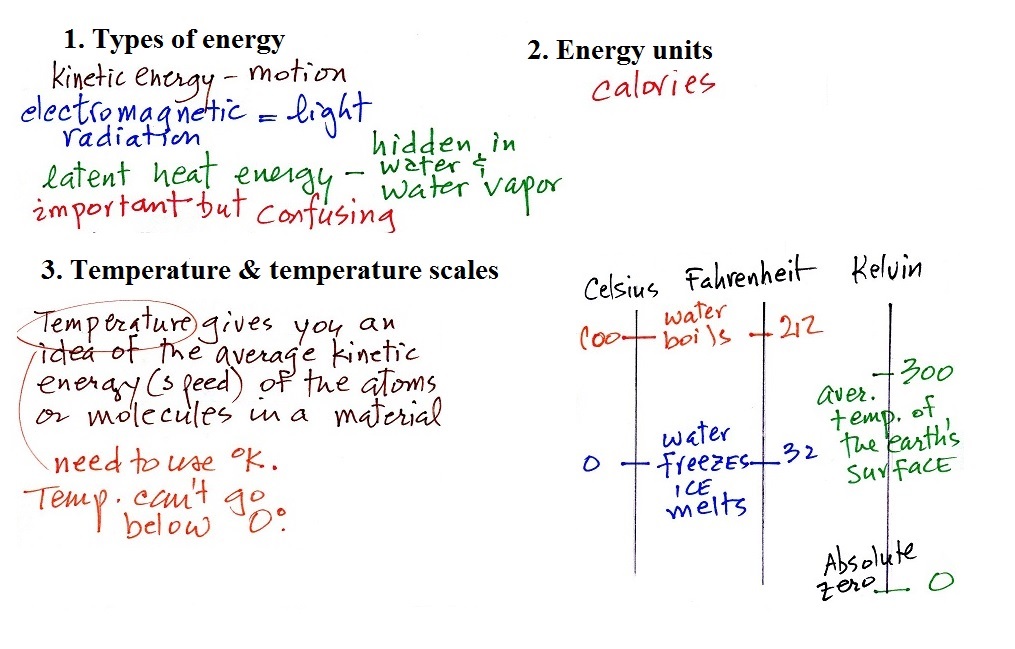 1. Types of energy
kinetic energy - motion
electromagnetic = light
radiation
latent heat energy - hidden in
water &
water vapor
important but confusing
2. Energy units
calories
3. Temperature & temperature scales
Temperature gives you an
idea of the average kinetic
energy (speed) of the atoms
or molecules in a material
need to use °K.
Temp. can't go
below 0°
Celsius Fahrenheit Kelvin
100 water 212
boils
300
aver.
temp. of
the earth's
surface
0 water 32
freezes
ICE
melts
Absolute
zero 0